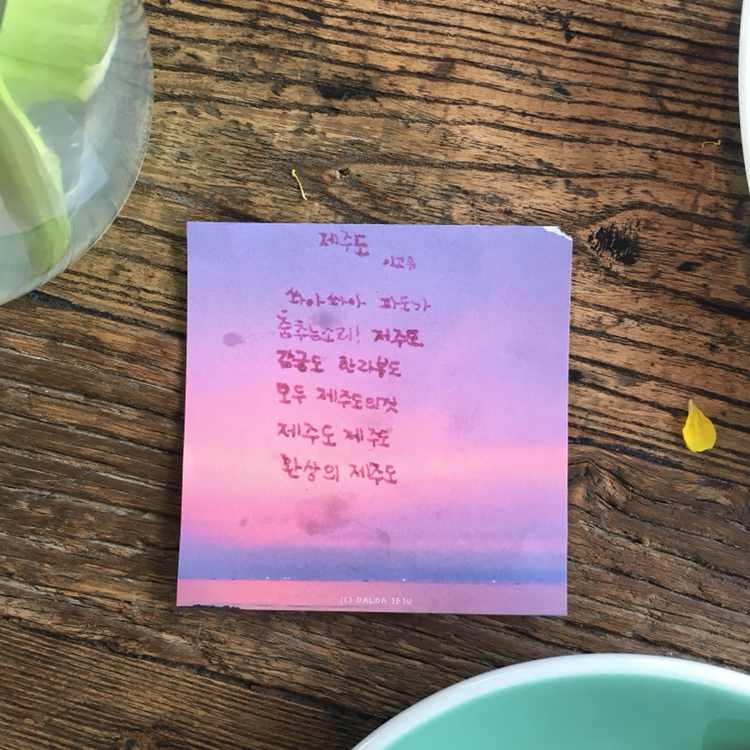 제주도
이고유
쏴아 쏴아 파도가
춤추는소리! 제주도
감귤도 한라봉도
모두 제주도의것
제주도 제주도
환상의 제주도
(C) DALDA JEJU